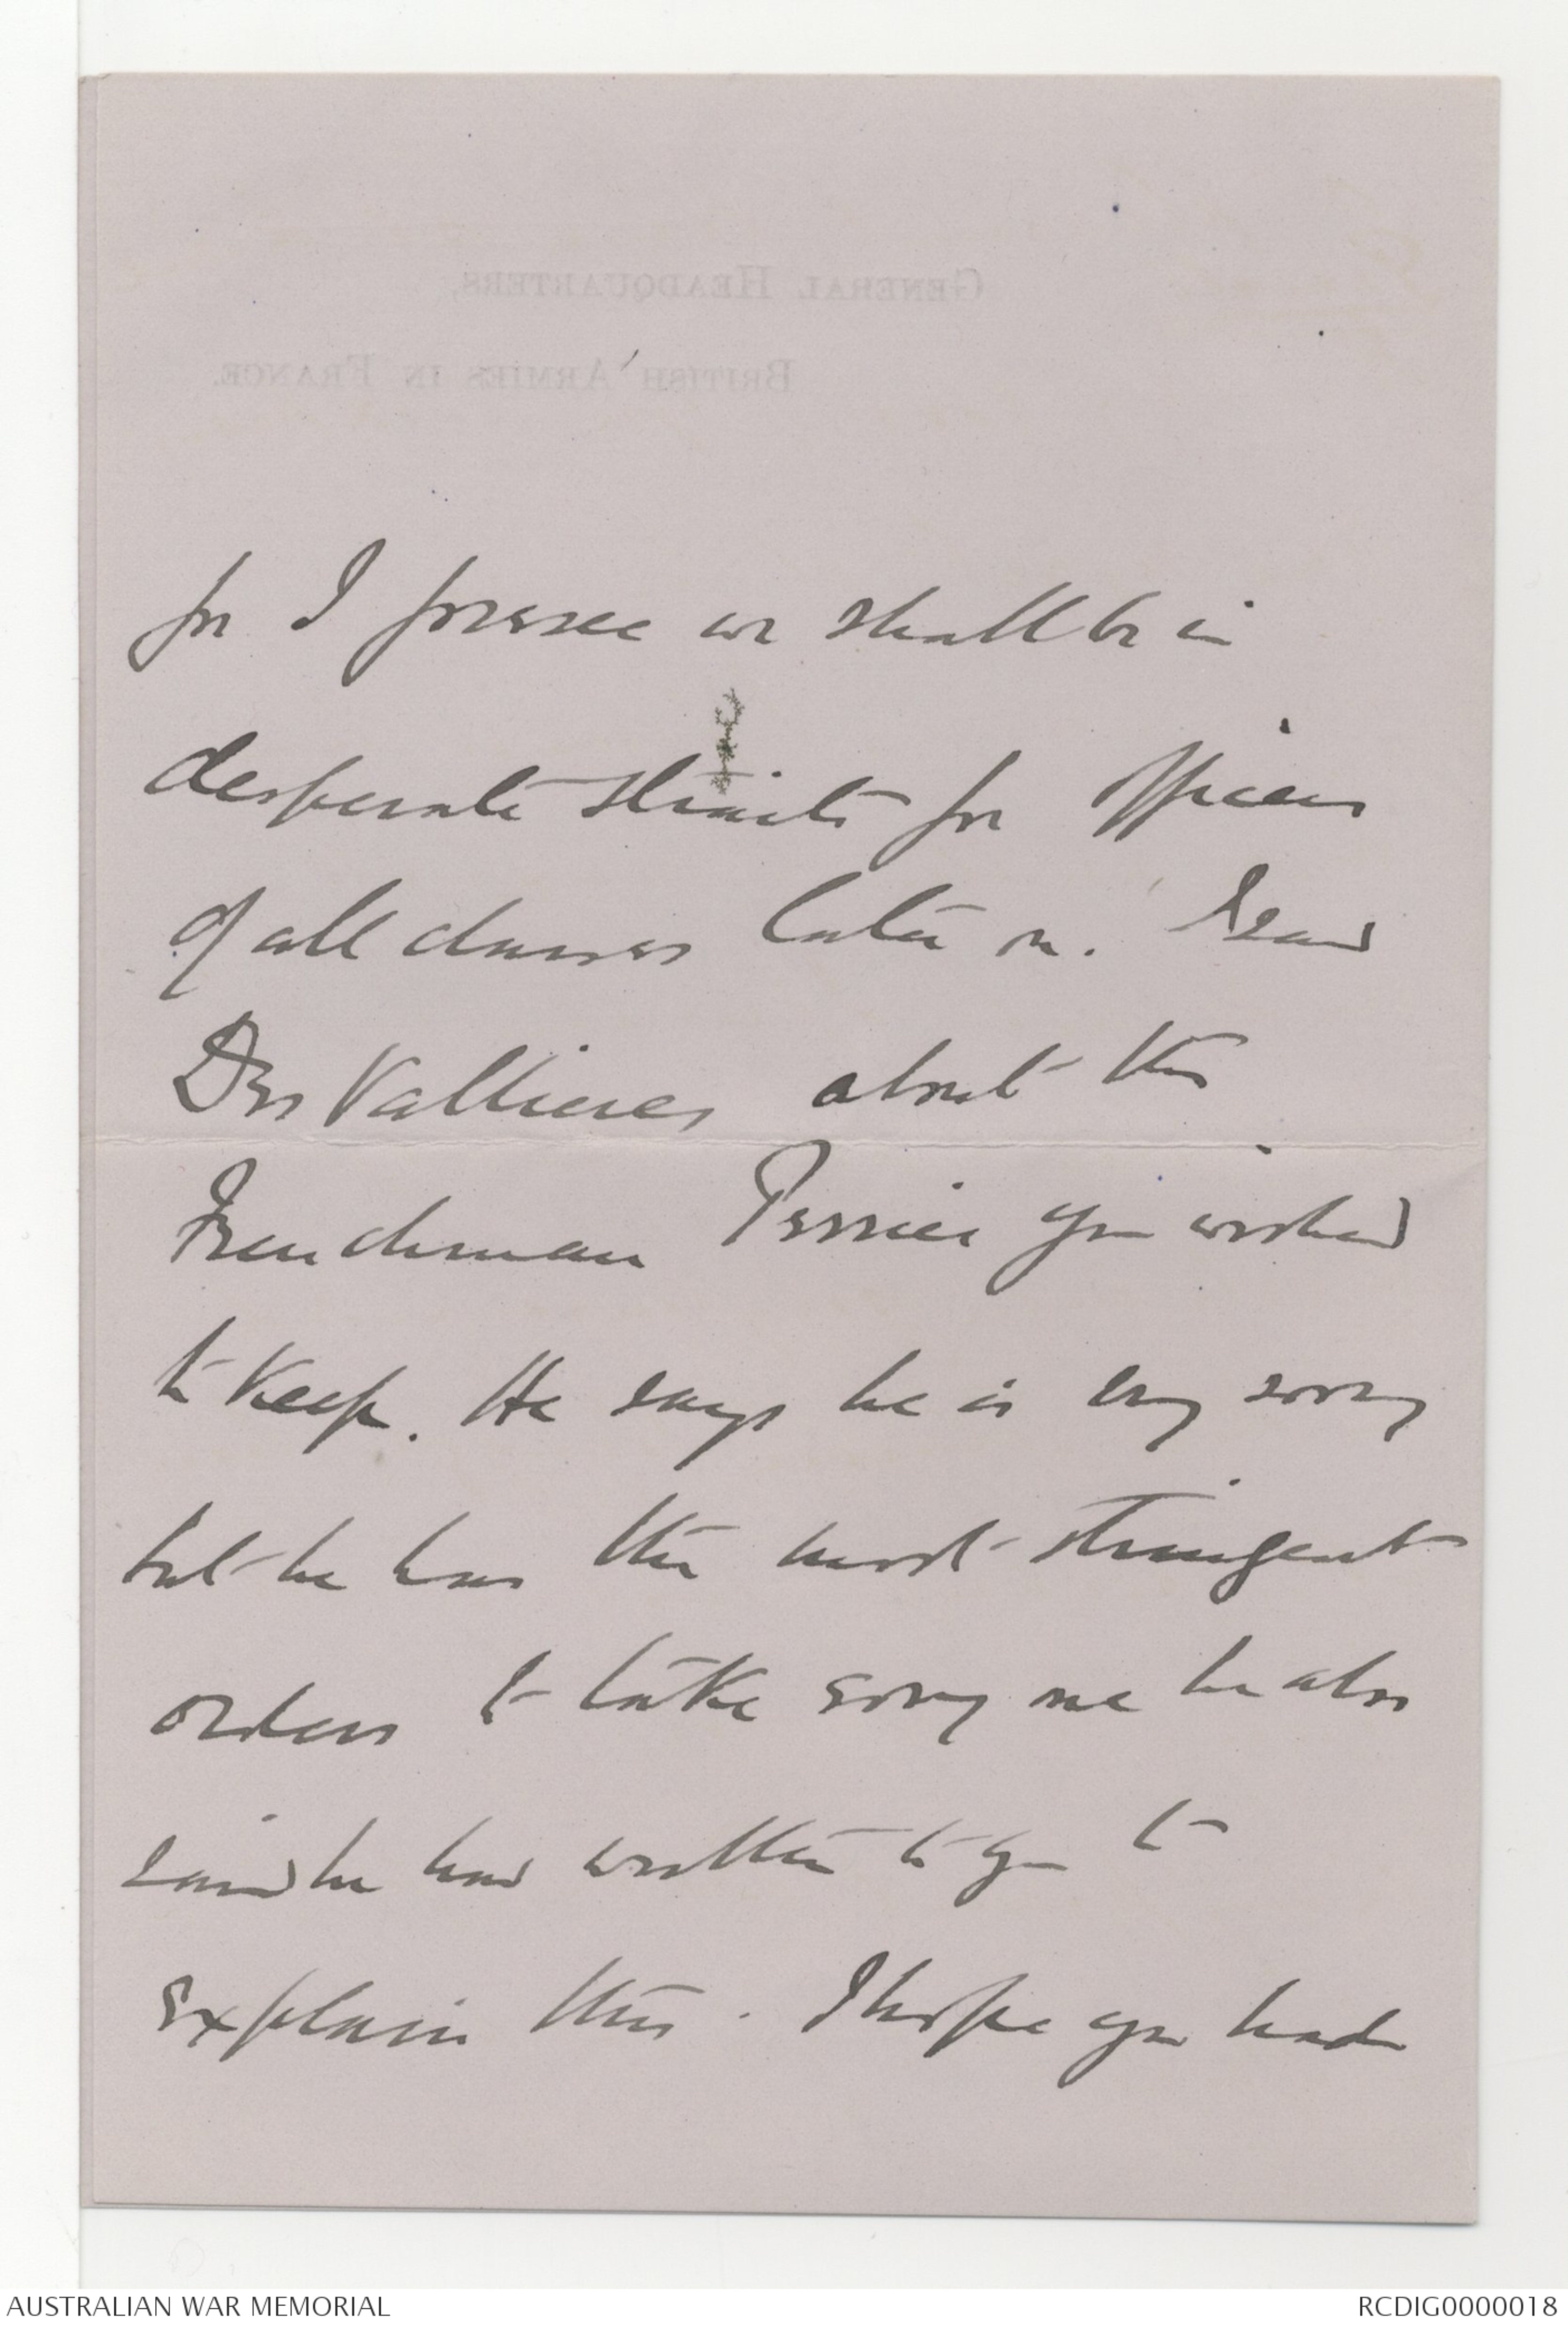 for I foresee we shall be in
desperate straits for officers
of all classes later on. I saw
Des Vallieres about the
Frenchman Perrier you wished
to keep. He says he is very sorry
but he has the most stringent
orders to take every one he also
said he had written to you to
explain this. I hope you had
GENERAL HEADQUARTERS,
BRITISH ARMIES IN FRANCE.
AUSTRALIAN WAR MEMORIAL
RCDIG0000018